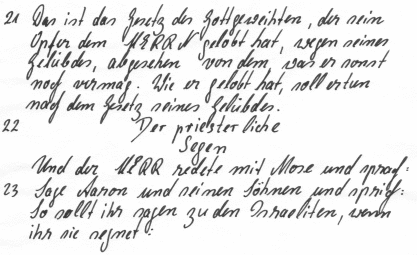 21 Das ist das Gesetz des Gottgeweihten, der sein
Opfer dem HERRN gelobt hat, wegen seines
Gelübdes, abgesehen von dem, was er sonst
noch vermag. Wie er gelobt hat, soll er tun
nach dem Gesetz seines Gelübdes.
22 Der priesterliche
Segen
Und der HERR redete mit Mose und sprach:
23 Sage Aaron und seinen Söhnen und sprich:
So sollt ihr sagen zu den Israeliten, wenn
ihr sie segnet: